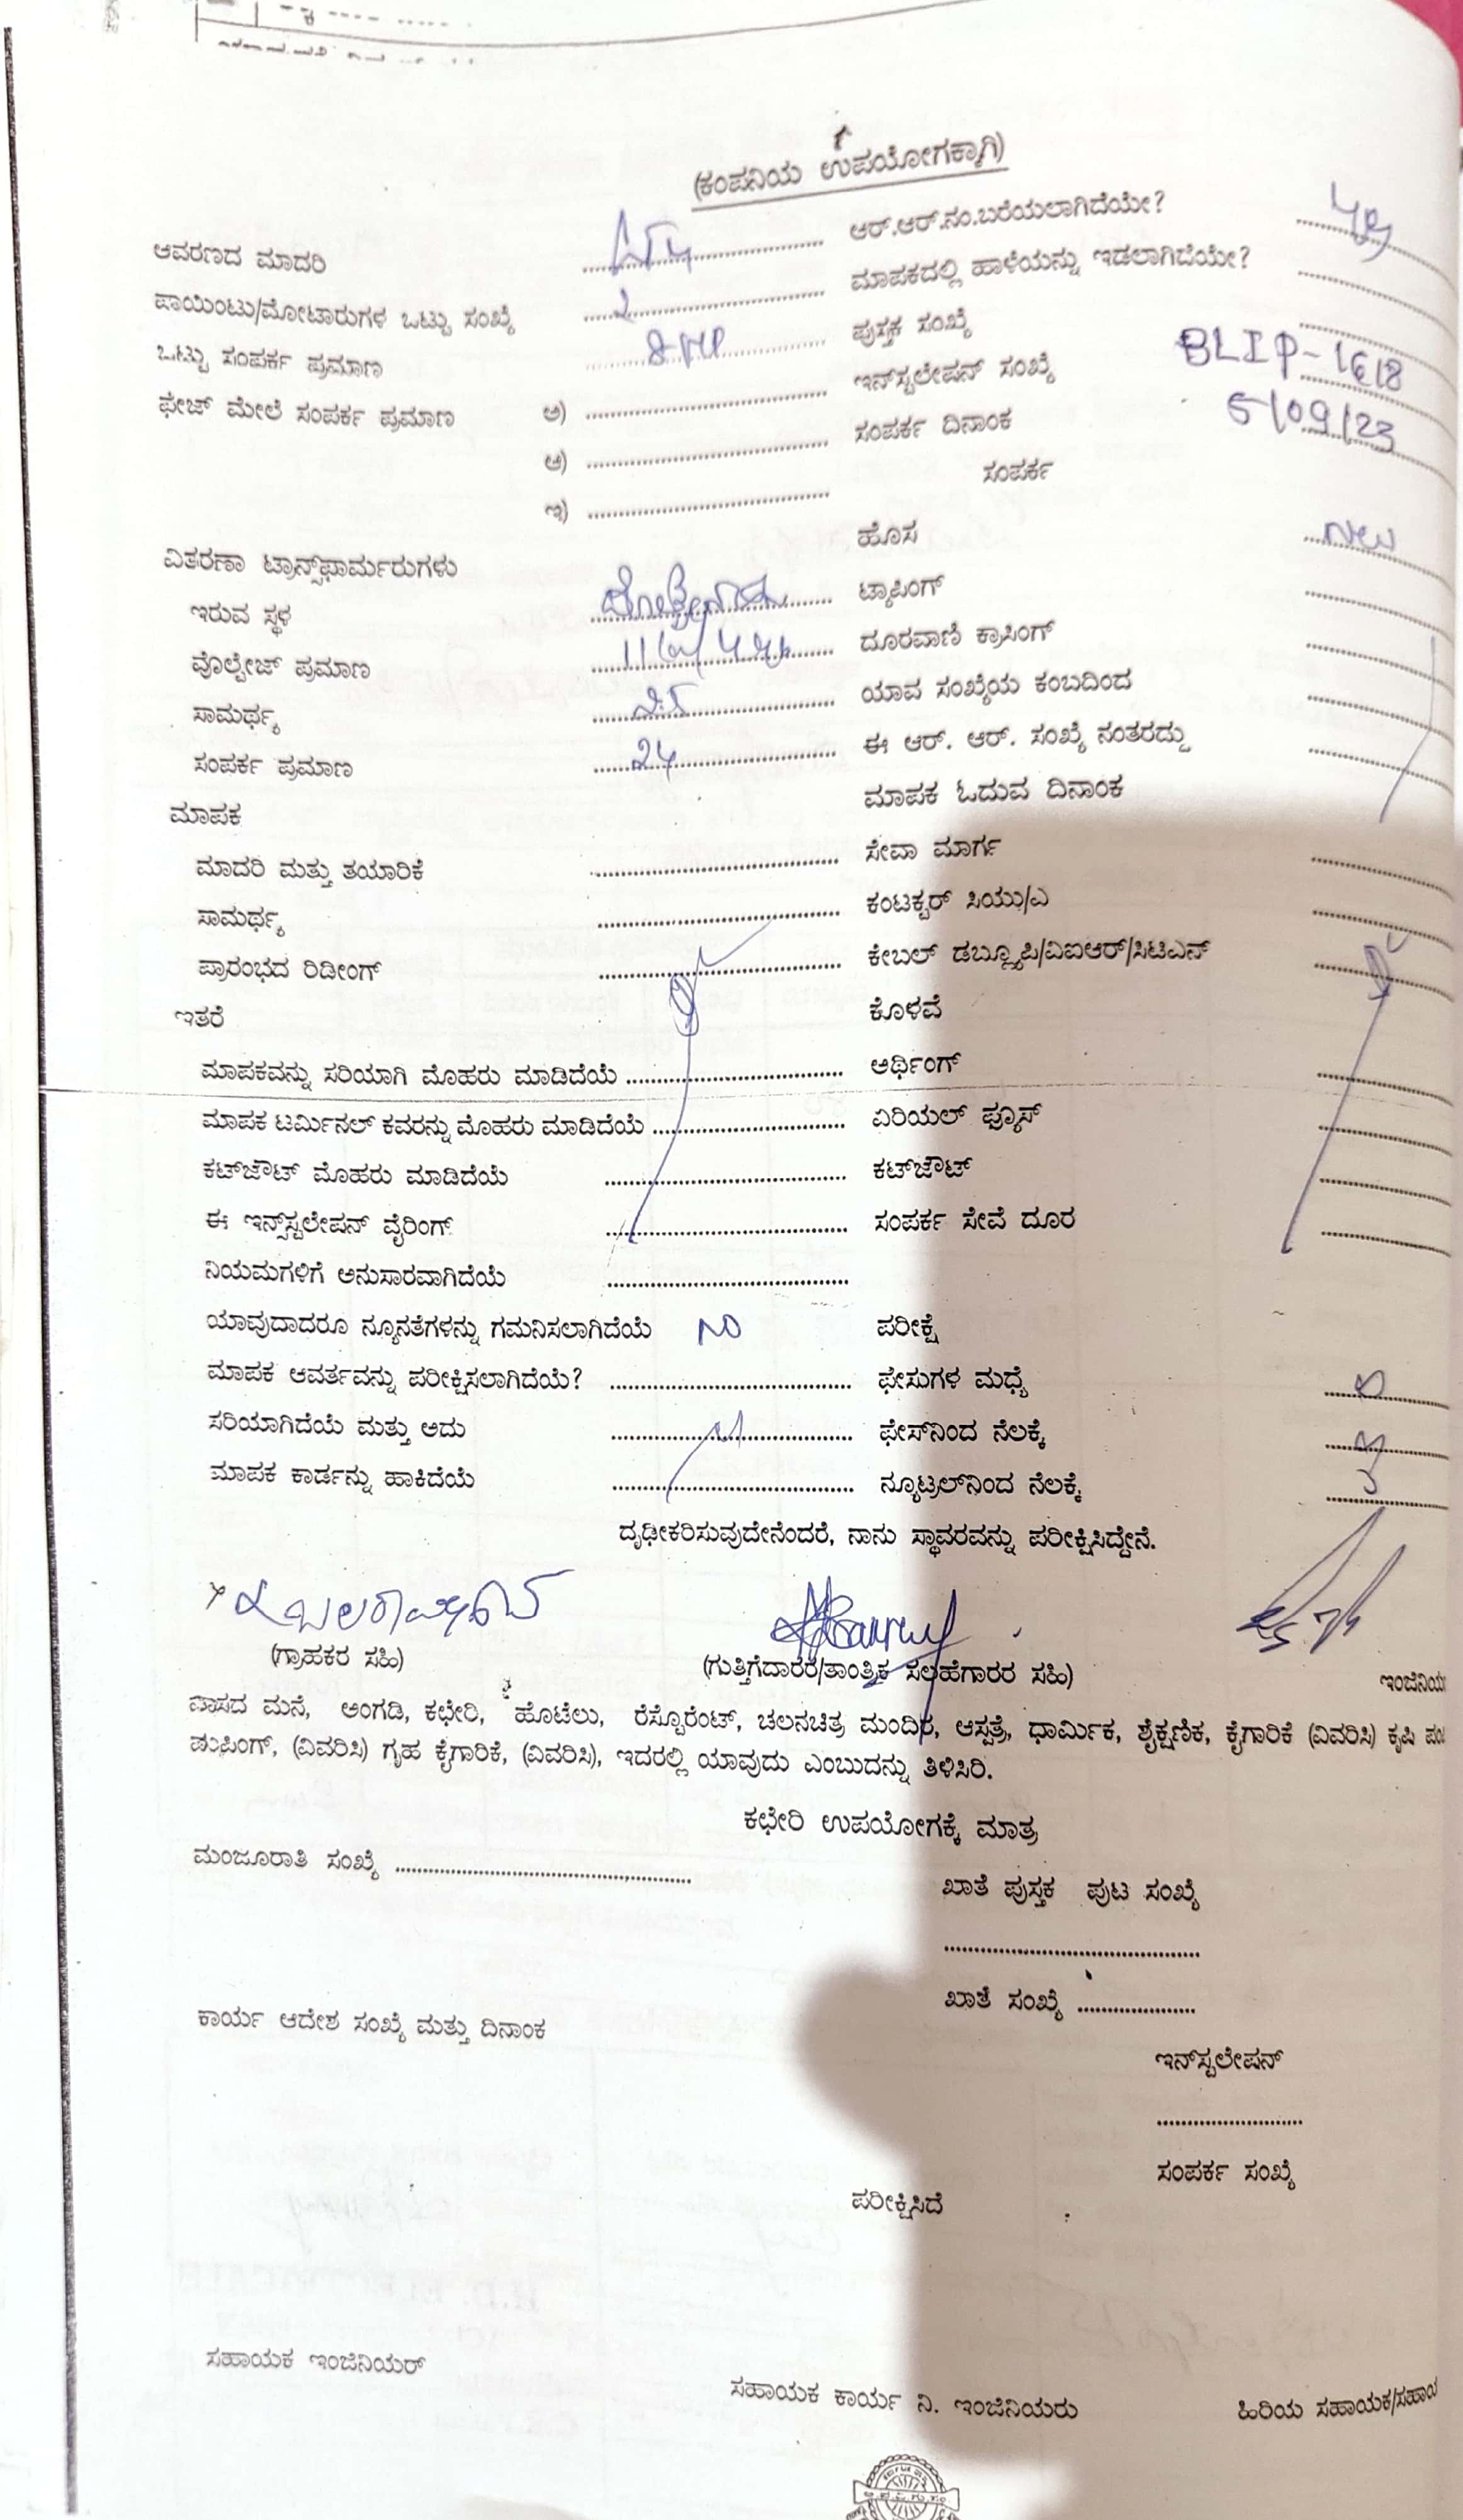 (ಕಂಪನಿಯ ಉಪಯೋಗಕ್ಕಾಗಿ)
ಆವರಣದ ಮಾದರಿ ಆರ್.ಆರ್.ನಂ.ಬರೆಯಲಾಗಿದೆಯೇ?
ಪಾಯಿಂಟು/ಮೋಟಾರುಗಳ ಒಟ್ಟು ಸಂಖ್ಯೆ 2 ಮಾಪಕದಲ್ಲಿ ಹಾಳೆಯನ್ನು ಇಡಲಾಗಿದೆಯೇ?
ಒಟ್ಟು ಸಂಪರ್ಕ ಪ್ರಮಾಣ ಪುಸ್ತಕ ಸಂಖ್ಯೆ
ಫೇಜ್ ಮೇಲೆ ಸಂಪರ್ಕ ಪ್ರಮಾಣ ಅ) ಇನ್‌ಸ್ಟಲೇಷನ್ ಸಂಖ್ಯೆ BLIP-1618
ಆ) ಸಂಪರ್ಕ ದಿನಾಂಕ 5/09/23
ಇ) ಸಂಪರ್ಕ
ವಿತರಣಾ ಟ್ರಾನ್ಸ್‌ಫಾರ್ಮರುಗಳು ಹೊಸ
ಇರುವ ಸ್ಥಳ ಟ್ಯಾಪಿಂಗ್
ವೊಲ್ಟೇಜ್ ಪ್ರಮಾಣ ದೂರವಾಣಿ ಕ್ರಾಸಿಂಗ್
ಸಾಮರ್ಥ್ಯ 25 ಯಾವ ಸಂಖ್ಯೆಯ ಕಂಬದಿಂದ
ಸಂಪರ್ಕ ಪ್ರಮಾಣ 24 ಈ ಆರ್. ಆರ್. ಸಂಖ್ಯೆ ನಂತರದ್ದು
ಮಾಪಕ ಮಾಪಕ ಓದುವ ದಿನಾಂಕ
ಮಾದರಿ ಮತ್ತು ತಯಾರಿಕೆ ಸೇವಾ ಮಾರ್ಗ
ಸಾಮರ್ಥ್ಯ ಕಂಟಕ್ಟರ್ ಸಿಯು/ಎ
ಪ್ರಾರಂಭದ ರಿಡೀಂಗ್ ಕೇಬಲ್ ಡಬ್ಲ್ಯೂಪಿ/ವಿಐಆರ್/ಸಿಟಿಎಸ್
ಇತರೆ ಕೊಳವೆ
ಮಾಪಕವನ್ನು ಸರಿಯಾಗಿ ಮೊಹರು ಮಾಡಿದೆಯೆ ಅರ್ಥಿಂಗ್
ಮಾಪಕ ಟರ್ಮಿನಲ್ ಕವರನ್ನು ಮೊಹರು ಮಾಡಿದೆಯೆ ಏರಿಯಲ್ ಫ್ಯೂಸ್
ಕಟ್‌ಜೌಟ್ ಮೊಹರು ಮಾಡಿದೆಯೆ ಕಟ್‌ಜೌಟ್
ಈ ಇನ್ಸ್‌ಸ್ಟಲೇಷನ್ ವೈರಿಂಗ್ ಸಂಪರ್ಕ ಸೇವೆ ದೂರ
ನಿಯಮಗಳಿಗೆ ಅನುಸಾರವಾಗಿದೆಯೆ
ಯಾವುದಾದರೂ ನ್ಯೂನತೆಗಳನ್ನು ಗಮನಿಸಲಾಗಿದೆಯೆ NO ಪರೀಕ್ಷೆ
ಮಾಪಕ ಆವರ್ತವನ್ನು ಪರೀಕ್ಷಿಸಲಾಗಿದೆಯೆ? ಫೇಸುಗಳ ಮಧ್ಯೆ
ಸರಿಯಾಗಿದೆಯೆ ಮತ್ತು ಅದು ಫೇಸ್‌ನಿಂದ ನೆಲಕ್ಕೆ
ಮಾಪಕ ಕಾರ್ಡನ್ನು ಹಾಕಿದೆಯೆ ನ್ಯೂಟ್ರಲ್‌ನಿಂದ ನೆಲಕ್ಕೆ
ದೃಢೀಕರಿಸುವುದೇನೆಂದರೆ, ನಾನು ಸ್ಥಾವರವನ್ನು ಪರೀಕ್ಷಿಸಿದ್ದೇನೆ.
(ಗ್ರಾಹಕರ ಸಹಿ) (ಗುತ್ತಿಗೆದಾರರ/ತಾಂತ್ರಿಕ ಸಲಹೆಗಾರರ ಸಹಿ)
ವಾಸದ ಮನೆ, ಅಂಗಡಿ, ಕಛೇರಿ, ಹೊಟೆಲು, ರೆಸ್ಟೊರೆಂಟ್, ಚಲನಚಿತ್ರ ಮಂದಿರ, ಆಸ್ಪತ್ರೆ, ಧಾರ್ಮಿಕ, ಶೈಕ್ಷಣಿಕ, ಕೈಗಾರಿಕೆ (ವಿವರಿಸಿ) ಕೃಷಿ
ಪಂಪಿಂಗ್, (ವಿವರಿಸಿ) ಗೃಹ ಕೈಗಾರಿಕೆ, (ವಿವರಿಸಿ), ಇದರಲ್ಲಿ ಯಾವುದು ಎಂಬುದನ್ನು ತಿಳಿಸಿರಿ.
ಕಛೇರಿ ಉಪಯೋಗಕ್ಕೆ ಮಾತ್ರ
ಮಂಜೂರಾತಿ ಸಂಖ್ಯೆ
ಖಾತೆ ಪುಸ್ತಕ ಪುಟ ಸಂಖ್ಯೆ
ಖಾತೆ ಸಂಖ್ಯೆ
ಕಾರ್ಯ ಆದೇಶ ಸಂಖ್ಯೆ ಮತ್ತು ದಿನಾಂಕ
ಇನ್‌ಸ್ಟಲೇಷನ್
ಸಂಪರ್ಕ ಸಂಖ್ಯೆ
ಪರೀಕ್ಷಿಸಿದೆ
ಸಹಾಯಕ ಇಂಜಿನಿಯರ್
ಸಹಾಯಕ ಕಾರ್ಯ ನಿ. ಇಂಜಿನಿಯರು
ಹಿರಿಯ ಸಹಾಯಕ/